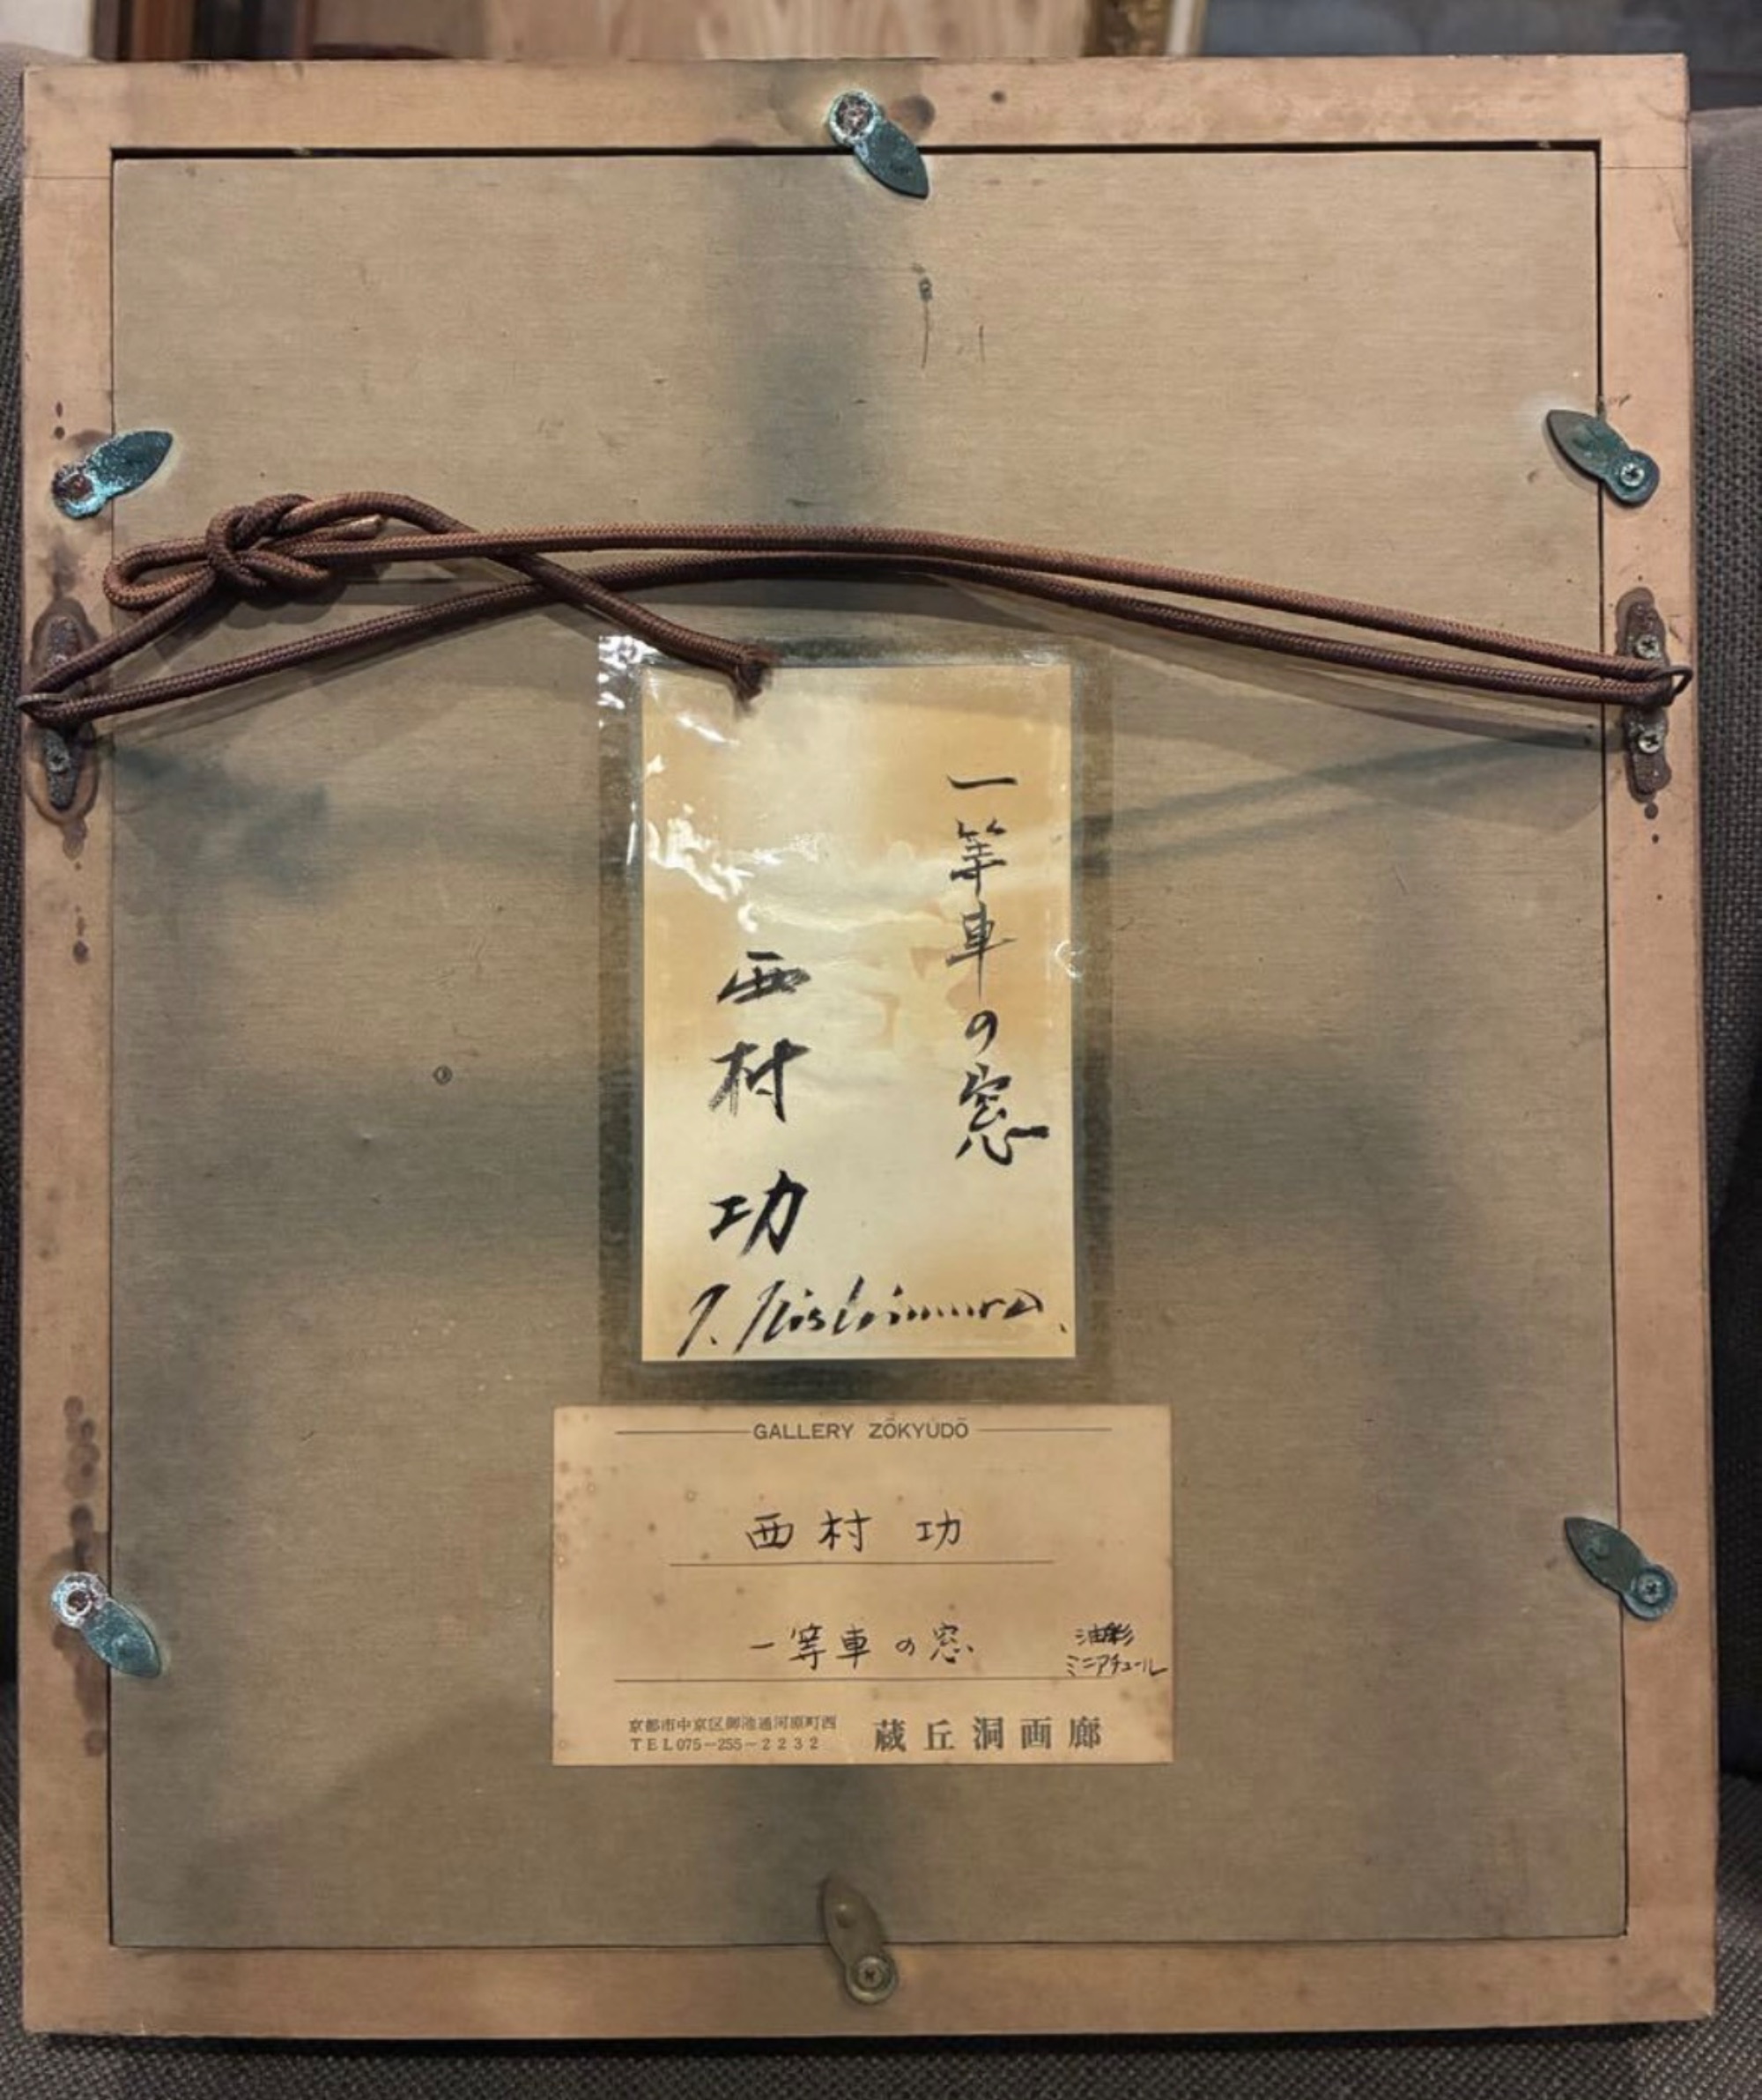 一等車の窓
西村 功
I. Nishimura.
GALLERY ZŌKYŪDŌ
西村 功
一等車の窓
油彩
ミニアチュール
京都市中京区御池通河原町西
TEL075-255-2232
蔵丘洞画廊